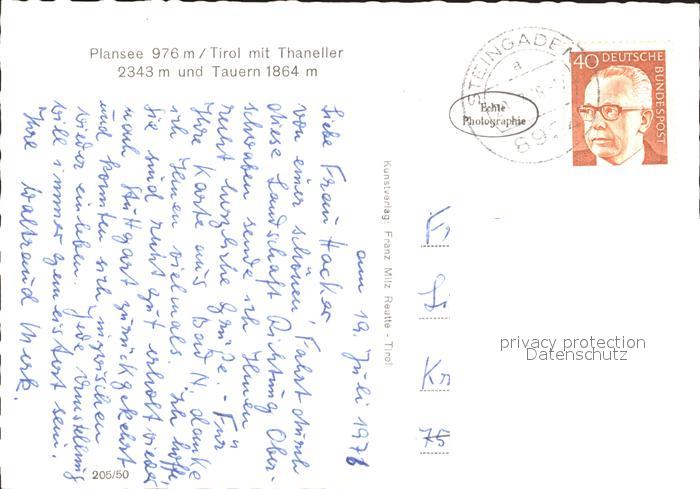 Plansee 976 m / Tirol mit Thaneller
2343 m und Tauern 1864 m
am 19. Juli 1976
Liebe Frau Hacker,
von einer schönen Fahrt durch
diese Landschaft Richtung Ober-
schwaben sende ich Ihnen
recht herzliche Grüße. - Für
Ihre Karte aus Bad N. danke
ich Ihnen vielmals. Ich hoffe,
Sie sind recht gut erholt wieder
nach Stuttgart zurückgekehrt
und konnten sich inzwischen
wieder einleben. Jede Umstellung
will immer gemeistert sein.
Ihre Waltraud
205/50
Kunstverlag Franz Milz Reutte - Tirol
Echte
Photographie
STEINGADEN
a
40 DEUTSCHE
BUNDESPOST
Fr
Kr
75
privacy protection
Datenschutz